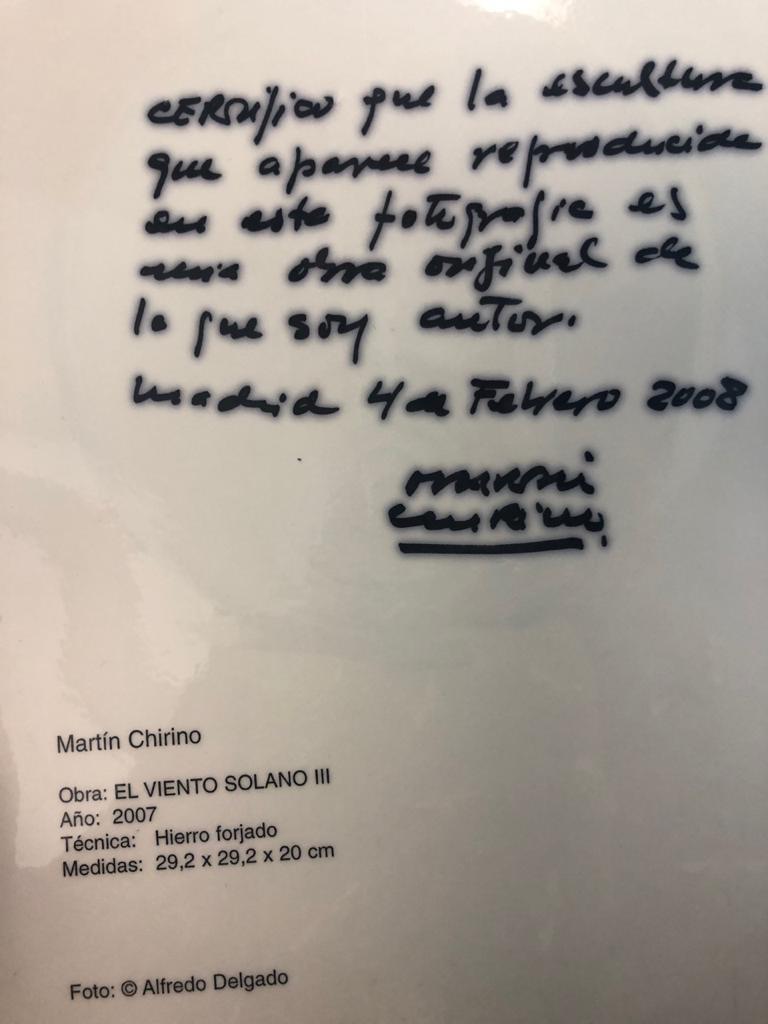 CERTifico que la escultura
que aparece reproducida
en esta fotografia es
una obra original de
la que soy autor.
Madrid 4 de Febrero 2008
Martín
Chirino
Martín Chirino
Obra: EL VIENTO SOLANO III
Año: 2007
Técnica: Hierro forjado
Medidas: 29,2 x 29,2 x 20 cm
Foto: © Alfredo Delgado